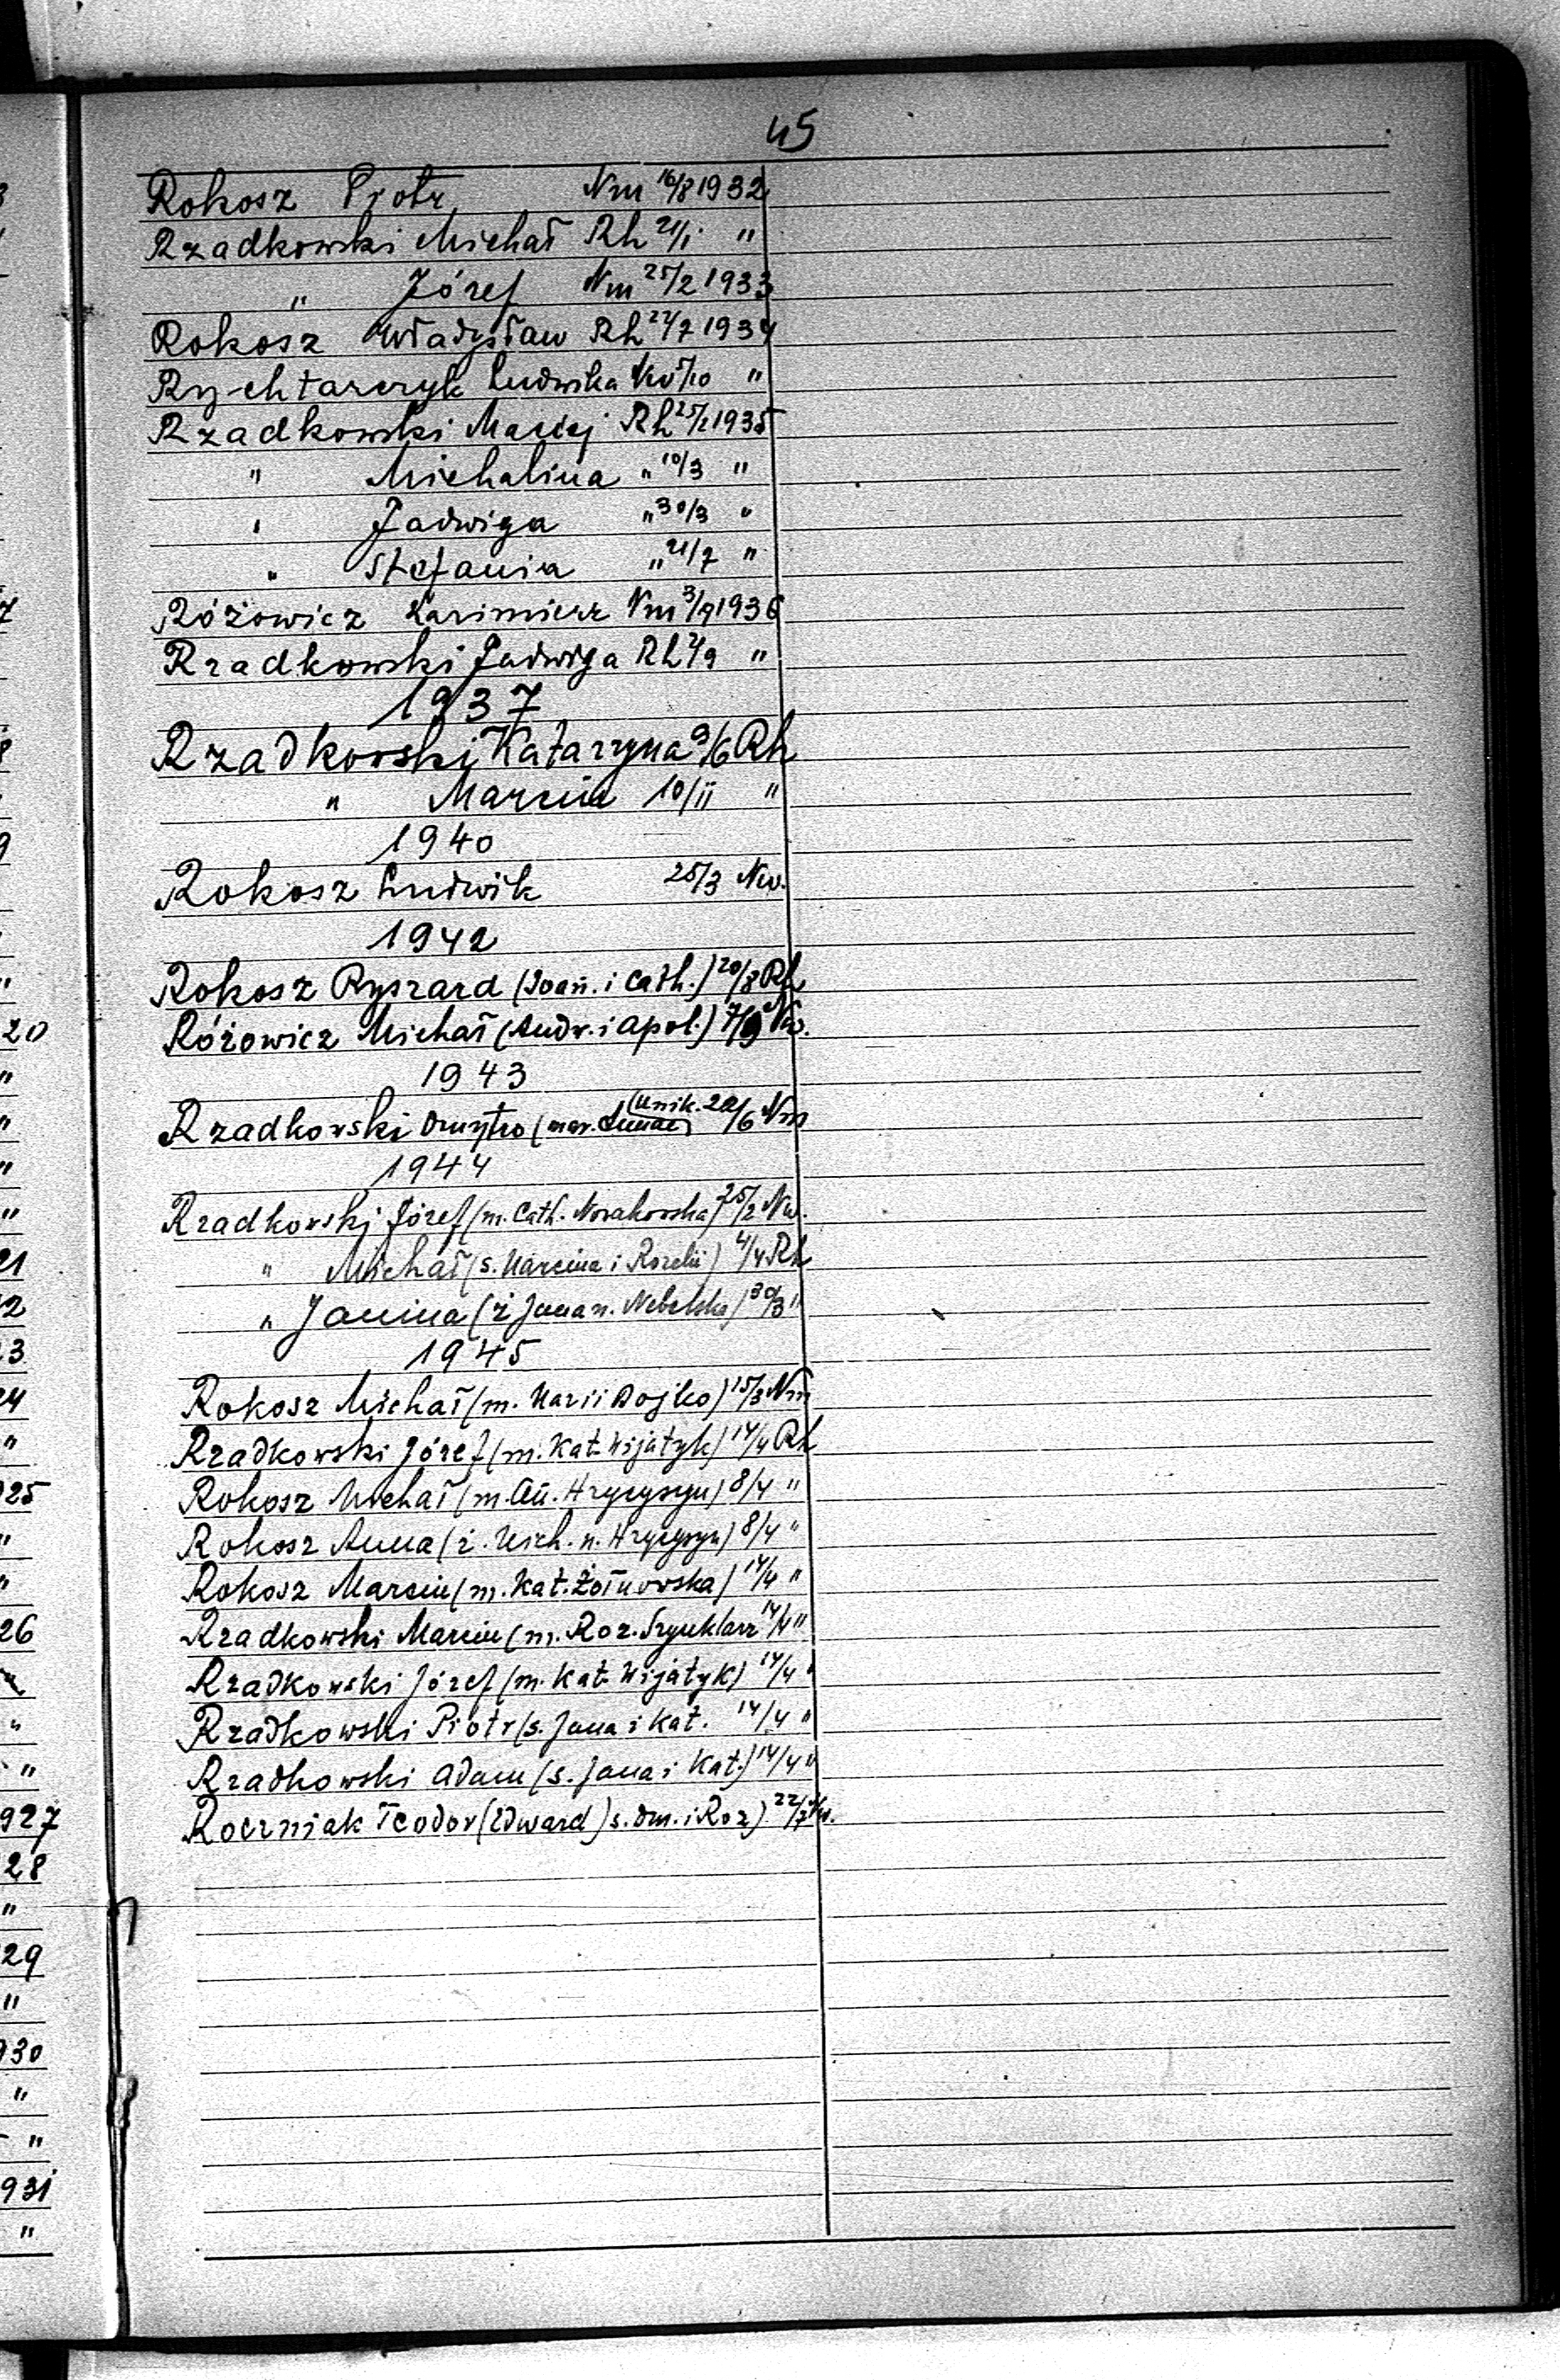 45
Rokosz Piotr Nm 16/8 1932
Rzadkowski Michał Rh 21/1 "
" Józef Nm 25/2 1933
Rokosz Władysław Rh 22/7 1934
Rychtarczyk Ludwika Nw 5/10 "
Rzadkowski Maciej Rh 25/1 1935
" Michalina " 10/3 "
" Jadwiga " 30/3 "
" Stefania " 21/7 "
Różowicz Kazimierz Nm 3/9 1936
Rzadkowski Jadwiga Rh /9 "
1937
Rzadkowski Katarzyna 9/6 Rh
" Marcin 10/II "
1940
Rokosz Ludwik 25/3 Nw.
1942
Rokosz Ryszard (Joan. i Cath.) 20/8 Rh
Różowicz Michał (Andr. i Apol.) 7/9 Nw.
1943
Rzadkowski Dmytro (mar. (Unik. 20/6 Nm
1944
Rzadkowski Józef (m. Cath. Novakovska) 25/2 Nw.
" Michał (s. Marcina i Rozalii) 4/4 Rh
" Janina (ż Jana n. Nebelska) 30/3 "
1945
Rokosz Michał (m. Marii Bojko) 15/3 Nm
Rzadkowski Józef (m. Kat. Wijatyk) 14/4 Rh
Rokosz Michał (m. An. Hrycysyn) 8/4 "
Rokosz Anna (ż. Mich. n. Hrycysyn) 8/4 "
Rokosz Marcin (m. Kat. Żołnowska) 14/4 "
Rzadkowski Marcin (m. Roz. Szynklarz 14/4 "
Rzadkowski Józef (m. Kat. Wijatyk) 14/4 "
Rzadkowski Piotr (s. Jana i Kat. 14/4 "
Rzadkowski Adam (s. Jana i Kat.) 14/4 "
Roczniak Teodor (Edward) s. Dm. i Roz) 22/7 Nw.